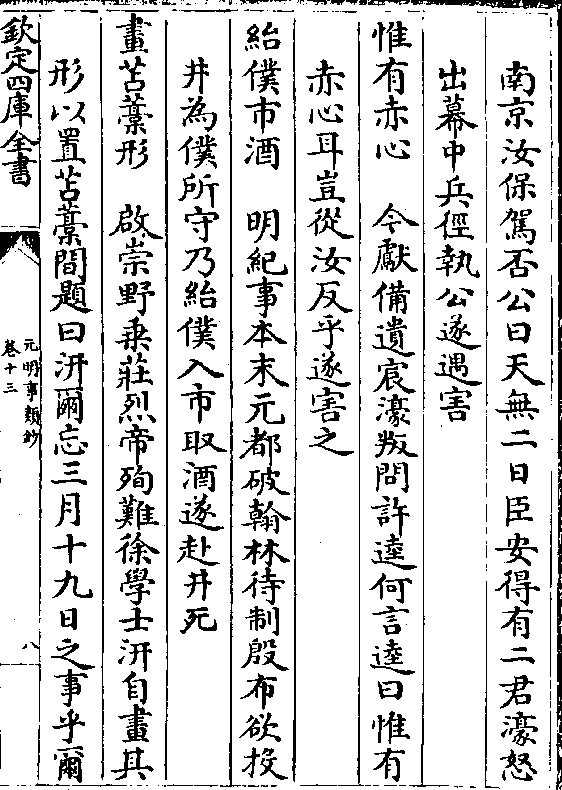 南京汝保駕否公曰天無二日臣安得有二君濠怒
出幕中兵徑執公遂遇害
惟有赤心　今獻備遺宸濠叛問許逵何言逵曰惟有
赤心耳豈從汝反乎遂害之
紿僕市酒　明紀事本末元都破翰林待制殷布欲投
井為僕所守乃紿僕入市取酒遂赴井死
畫苫藁形　啟崇野乗莊烈帝殉難徐學士汧自畫其
形以置苫藁間題曰汧爾忘三月十九日之事乎爾
欽定四庫全書
元明事類鈔
卷十三
八